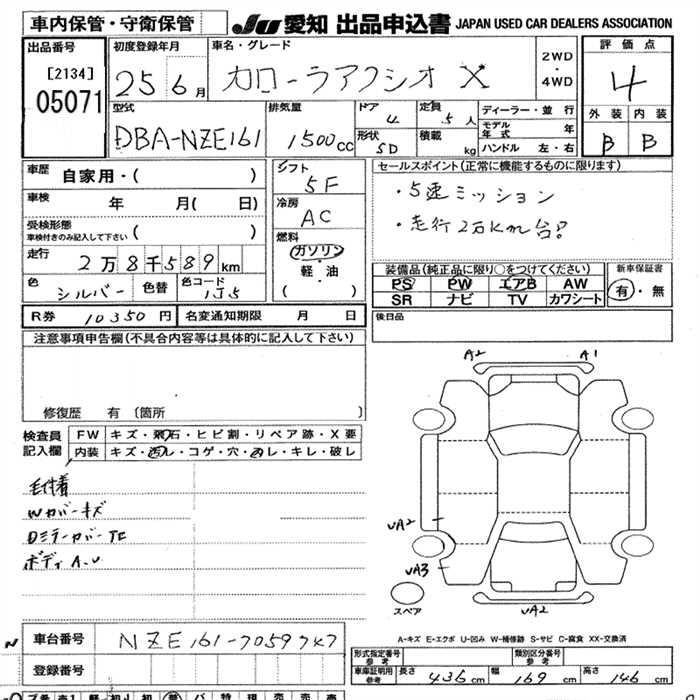 車内保管・守衛保管
JU 愛知 出品申込書 JAPAN USED CAR DEALERS ASSOCIATION
出品番号
[2134]
05071
初度登録年月
25 6月
車名・グレード
カローラアクシオ X
2WD
・
4WD
評価点
4
外装 内装
B B
型式
DBA-NZE161
排気量
1500cc
ドア 4
形状 5D
定員 5人
積載 kg
ディーラー・並行
モデル年式 年
ハンドル 左・右
車歴 自家用・( )
車検 年 月( 日)
受検形態
車検付きのみ記入して下さい ( )
走行 2万8千589km
色 シルバー 色替 色コード 1J5
R券 10350円 名変通知期限 月 日
シフト
5F
冷房
AC
燃料
ガソリン
・
軽・油
( )
セールスポイント(正常に機能するものに限ります)
・5速ミッション
・走行2万km台!
装備品(純正品に限り○をつけてください)
PS PW エアB AW
SR ナビ TV カワシート
新車保証書
有・無
後日品
注意事項申告欄(不具合内容等は具体的に記入して下さい)
修復歴 有〔箇所 〕
検査員
記入欄
FW キズ・飛石・ヒビ割・リペア跡・X要
内装 キズ・汚レ・コゲ・穴・凹レ・キレ・破レ
毛付着
Wカバーキズ
DミラーカバーTC
ボディA.U
A2 A1
UA2
UA3
UA2
スペア
A-キズ E-エクボ U-凹み W-補修跡 S-サビ C-腐食 XX-交換済
N
車台番号 NZE161-7059747
登録番号
形式指定番号
参考
類別区分番号
参考
車庫証明用
参考
長さ 436cm 幅 169cm 高さ 146cm